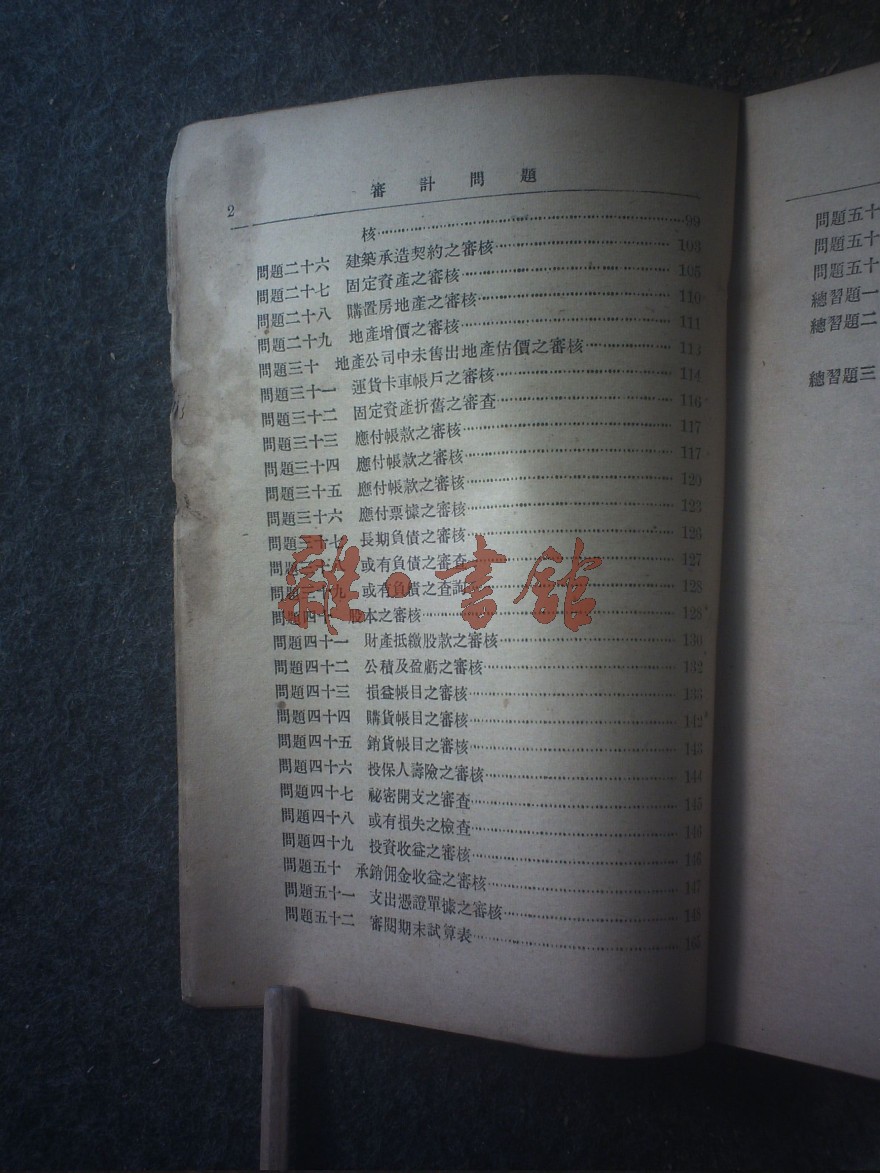 2 審計問題
核……99
問題二十六 建築承造契約之審核……103
問題二十七 固定資產之審核……105
問題二十八 購置房地產之審核……110
問題二十九 地產增價之審核……111
問題三十 地產公司中未售出地產估價之審核……113
問題三十一 運貨卡車帳戶之審核……114
問題三十二 固定資產折舊之審查……116
問題三十三 應付帳款之審核……117
問題三十四 應付帳款之審核……117
問題三十五 應付帳款之審核……120
問題三十六 應付票據之審核……123
問題三十七 長期負債之審核……126
問題三十八 或有負債之審查……127
問題三十九 或有負債之查詢……128
問題四十 股本之審核……128
問題四十一 財產抵繳股款之審核……130
問題四十二 公積及盈虧之審核……132
問題四十三 損益帳目之審核……133
問題四十四 購貨帳目之審核……142
問題四十五 銷貨帳目之審核……143
問題四十六 投保人壽險之審核……144
問題四十七 祕密開支之審查……145
問題四十八 或有損失之檢查……146
問題四十九 投資收益之審核……146
問題五十 承銷佣金收益之審核……147
問題五十一 支出憑證單據之審核……148
問題五十二 審閱期末試算表……165
問題五十
問題五十
問題五十
總習題一
總習題二
總習題三
雜·書館